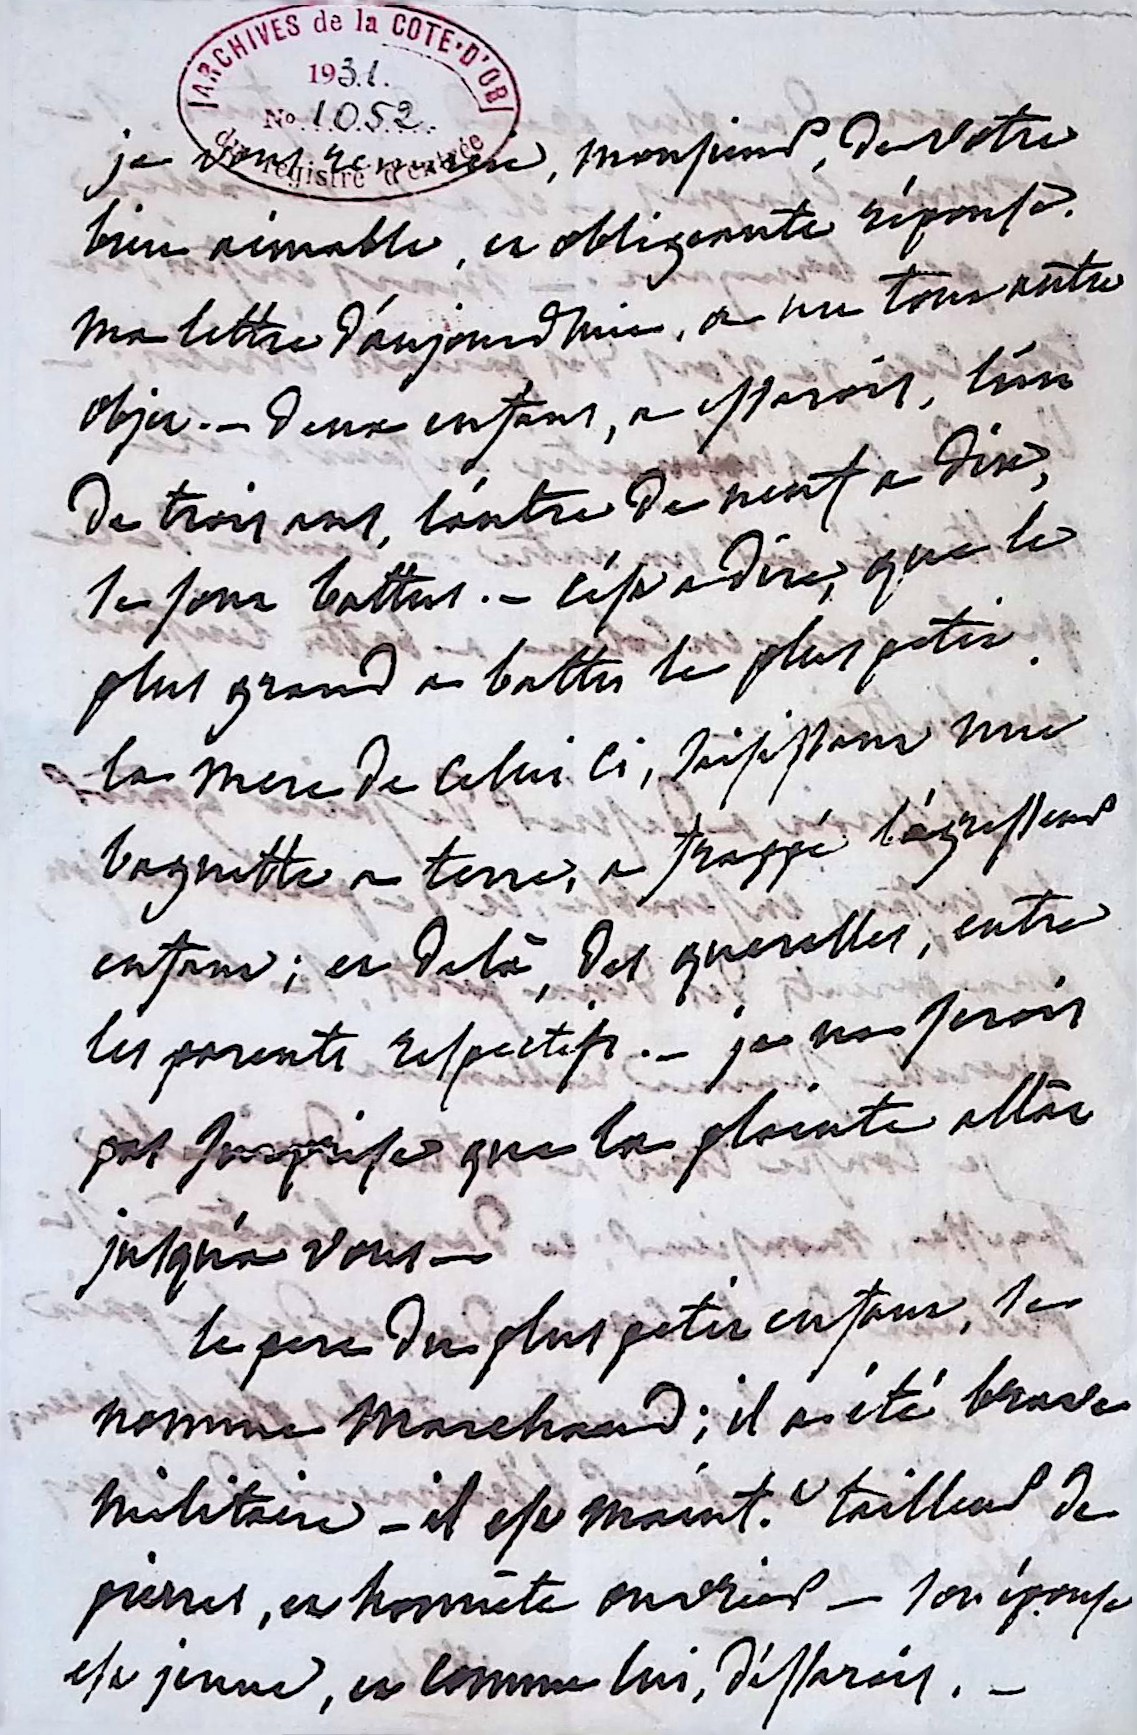 ARCHIVES de la COTE-D'OR
1931.
No 1052
du registre d'entrée
je vous remercie, monsieur, de votre
bien aimable, et obligeante réponse.
ma lettre d'aujourdhui, a un tout autre
objet. — deux enfans, a essarois, l'un
de trois ans, l'autre de neuf a dix,
se sont battus. — c'est a dire, que le
plus grand a battu le plus petit.
la mere de celui ci, saisissant une
baguette a terre, a frappé l'agresseur
enfant; et delà, des querelles, entre
les parents respectifs. — je ne serois
pas surprise que la plainte allat
jusqu'a vous —
le pere du plus petit enfant, se
nomme Marchand; il a été brave
militaire — il est maint.t tailleur de
pierres, et honnête ouvrier — son épouse
est jeune, et comme lui, d'essarois. —